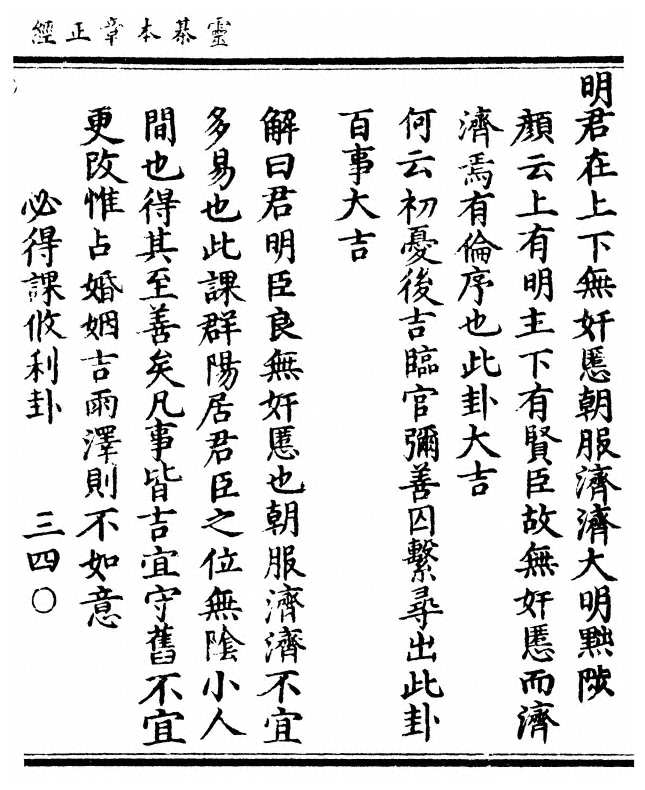 靈棊本章正經
明君在上下無奸慝朝服濟濟大明黜陟
顏云上有明主下有賢臣故無奸慝而濟
濟焉有倫序也此卦大吉
何云初憂後吉臨官彌善囚繫尋出此卦
百事大吉
解曰君明臣良無奸慝也朝服濟濟不宜
多易也此課群陽居君臣之位無陰小人
間也得其至善矣凡事皆吉宜守舊不宜
更改惟占婚姻吉雨澤則不如意
必得課攸利卦 三四〇